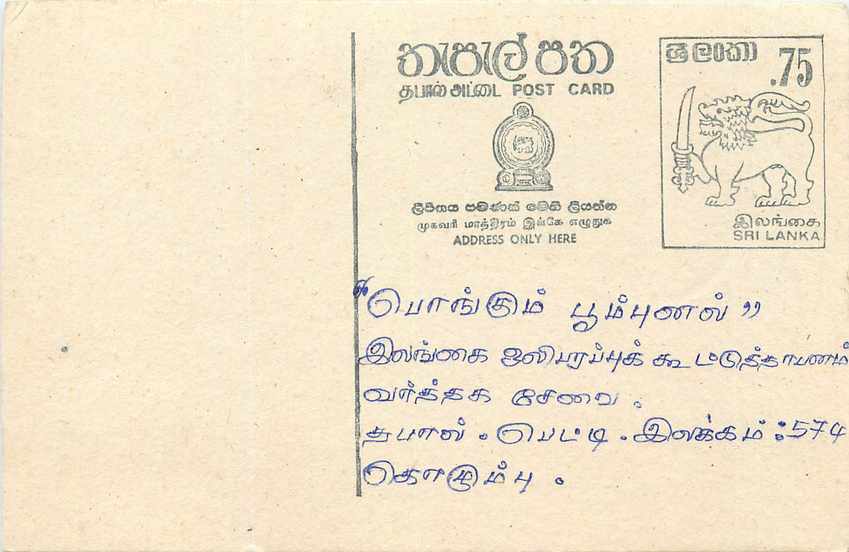 තැපැල් පත
தபால் அட்டை POST CARD
ශ්‍රී ලංකා
.75
ලිපිනය පමණක් මෙහි ලියන්න
முகவரி மாத்திரம் இங்கே எழுதுக
ADDRESS ONLY HERE
இலங்கை
SRI LANKA
"பொங்கும் பூம்புனல்"
இலங்கை ஒலிபரப்புக் கூட்டுத்தாபனம்
வர்த்தக சேவை.
தபால். பெட்டி. இலக்கம்: 574
கொழும்பு.